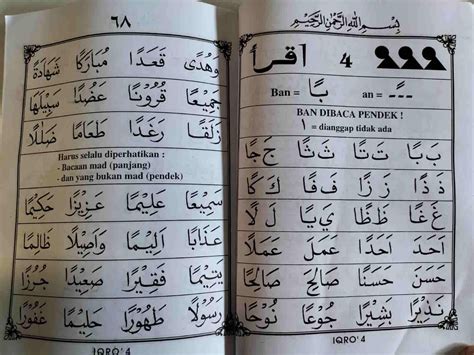 بِسْمِ اللهِ الرَّحْمٰنِ الرَّحِيْمِ
اقرأ 4
Ban = بًا an = ــًـ
BAN DIBACA PENDEK !
١ = dianggap tidak ada
بَ بًا تَ تًا ثَ ثًا جَ جًا
ذَ ذًا زَ زًا فَ فًا كَ كًا
غَ غًا ظَ ظًا يَ يًا لَ لًا
أَحَدَ أَحَدًا عَمَلَ عَمَلًا
حَسَنَ حَسَنًا صَالِحَ صَالِحًا
نَذِيْرًا بَشِيْرًا جُوْعًا نُوْحًا
IQRO' 4
٦٨
وَهُدًى قَعَدًا مُبَارَكًا شَهَادَةً
جَمِيْعًا قُرُوْنًا عَضُدًا سَبِيْلَهَا
زَلَقًا رَغَدًا طَعَامًا ضَلٰلًا
Harus selalu diperhatikan :
- Bacaan mad (panjang)
- dan yang bukan mad (pendek)
سَمِيْعًا عَلِيْمًا عَزِيْزًا حَكِيْمًا
عَذَابًا أَلِيْمًا وَأَصِيْلًا ظَالِمًا
يَتِيْمًا فَقِيْرًا صَعِيْدًا جُرُزًا
رَسُوْلًا طَهُوْرًا حَلِيْمًا غَفُوْرًا
IQRO' 4